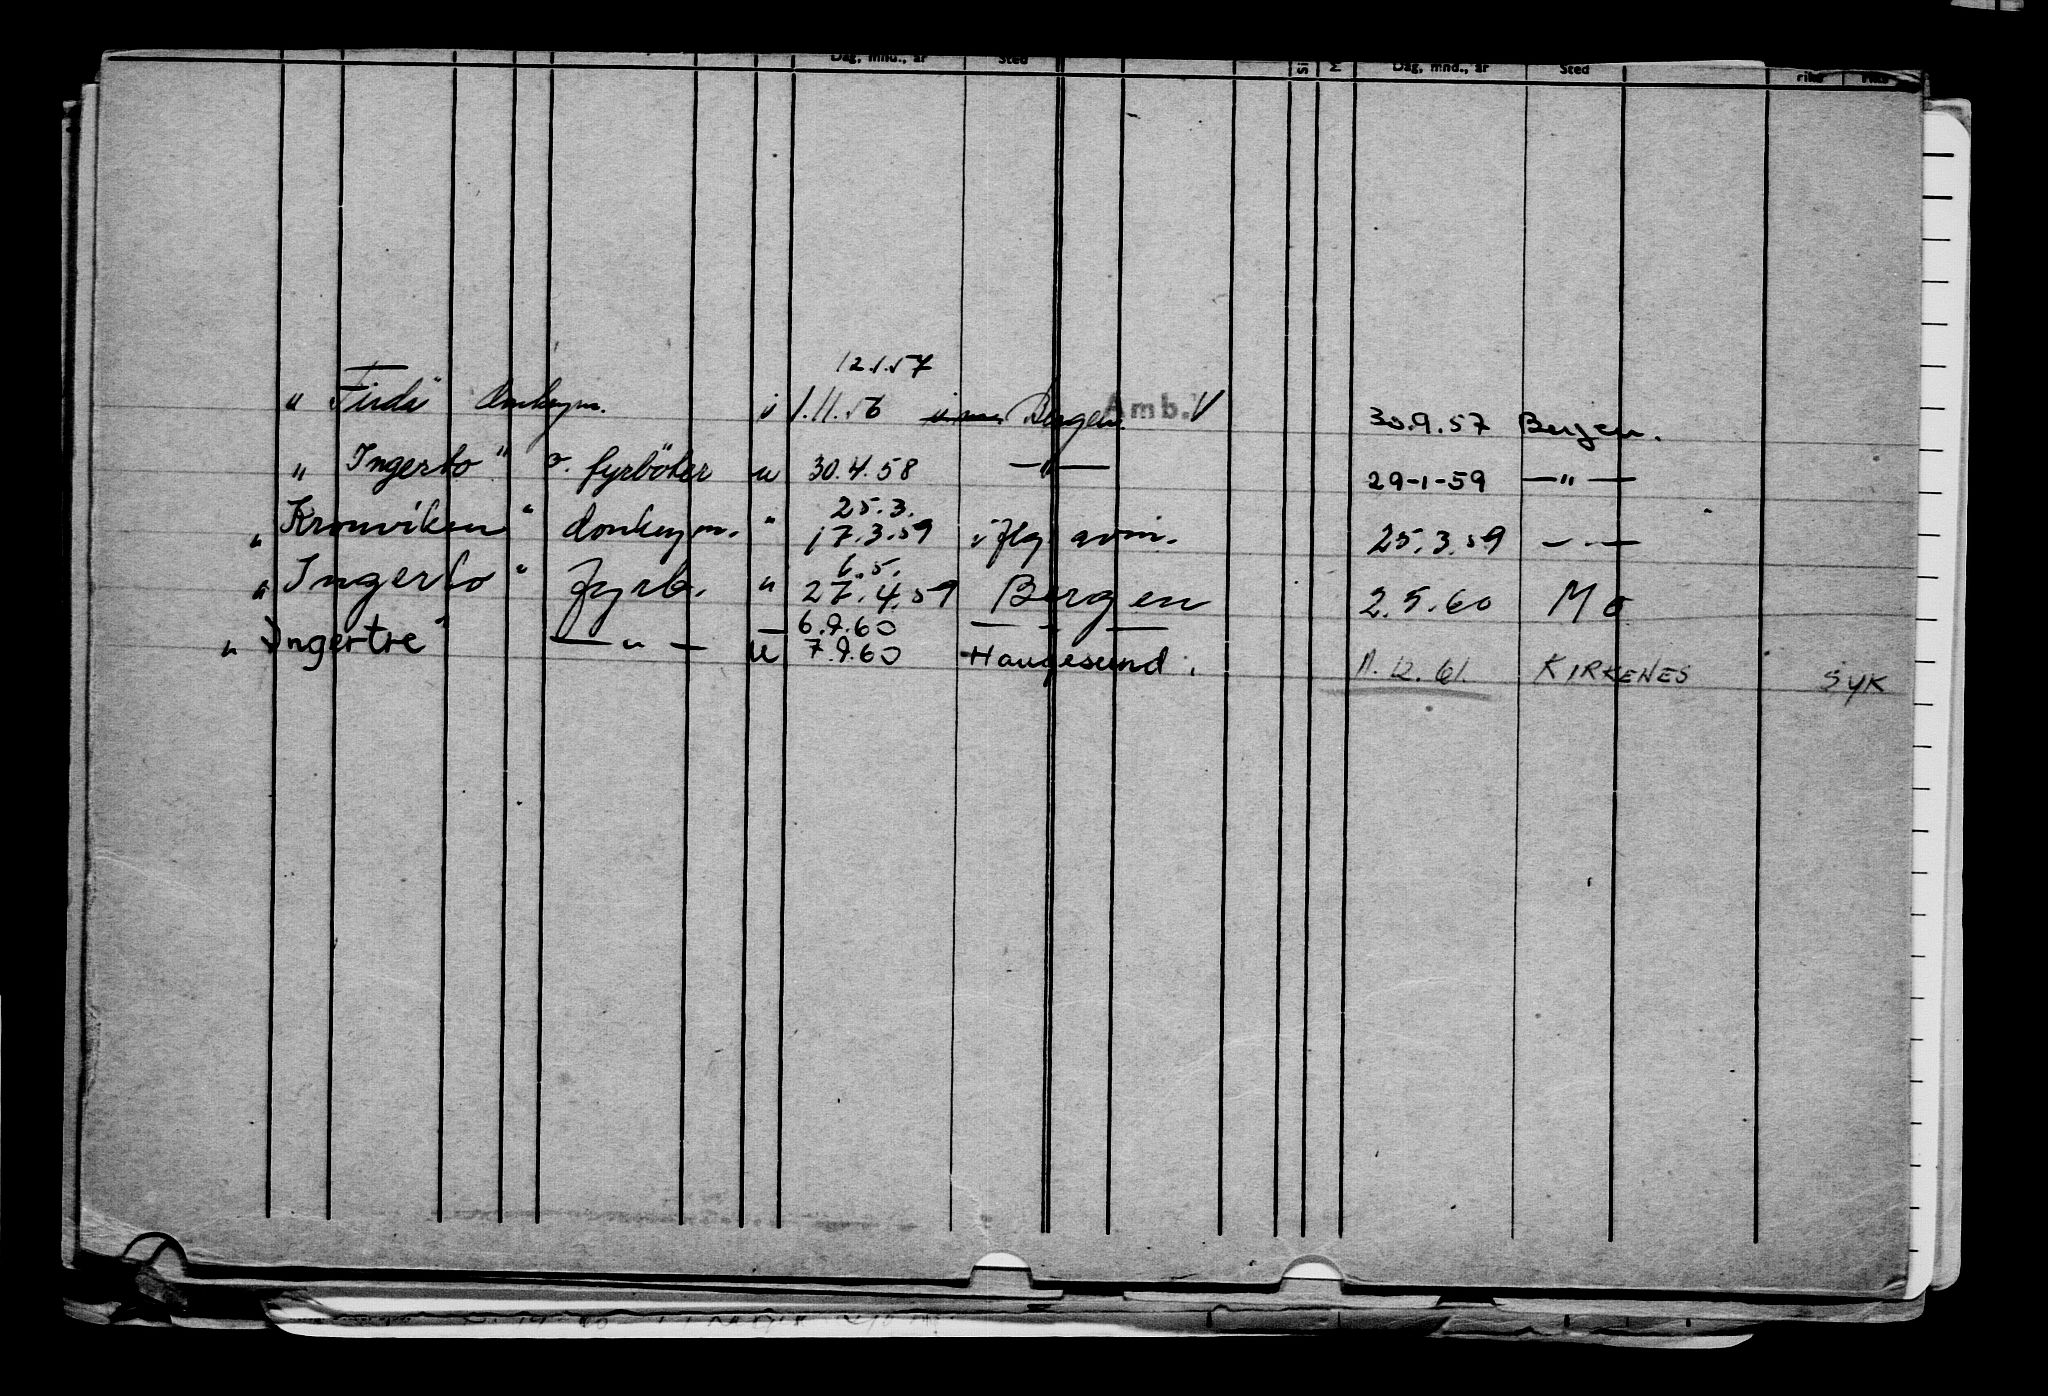 Dag, mnd., år Sted Dag, mnd., år Sted
12.1.57
" Firda" donkeym. u 1.11.56 Bergen Amb. V 30.9.57 Bergen.
" Ingerto" o. fyrböter u 30.4.58 —"— 29-1-59 —"—
25.3.
" Kronviken" donkeym. " 17.3.59 iflg avm. 25.3.59 —"—
6.5.
" Ingerto" Fyrb. u 27.4.59 Bergen 2.5.60 Mo
6.9.60 — — —
" Ingertre" —"— u 7.9.60 Haugesund. 11.12.61. KIRKENES SYK